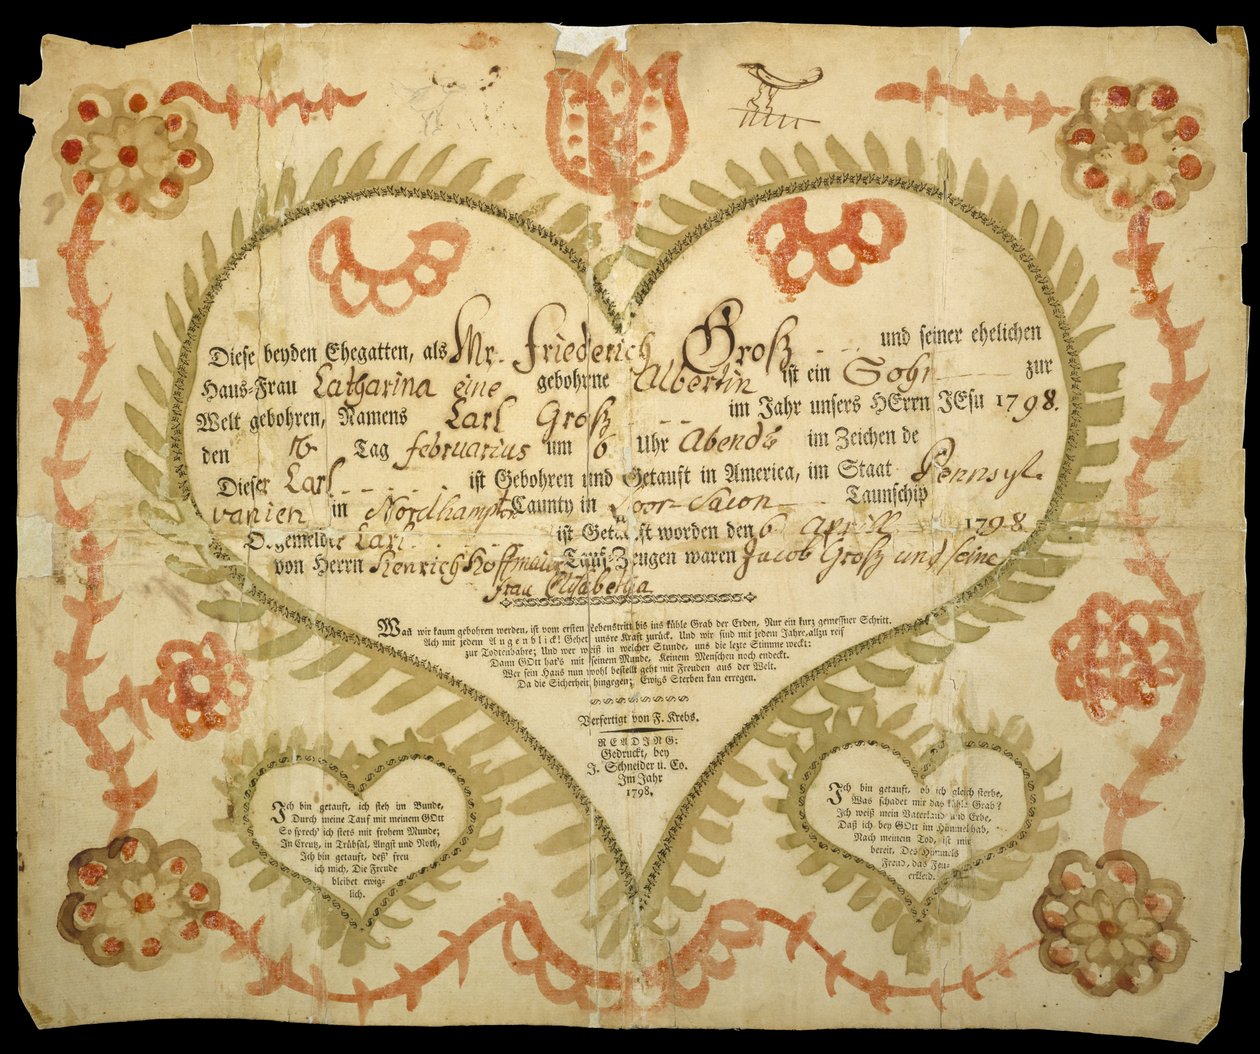 Diese beyden Ehegatten, als Mr. Friederich Groß und seiner ehelichen
Haus-Frau Catharina eine gebohrne Albertin ist ein Sohn zur
Welt gebohren, Namens Carl Groß im Jahr unsers HErrn JEsu 1798.
den Tag februarius um 6 Uhr Abends im Zeichen de
Dieser Carl ist Gebohren und Getauft in America, im Staat Pennsyl-
vanien in Nordhampton Caunty in Taunschip
Obgemeldter Carl ist Getauft worden den 6 Aprill 1798
von Herrn Henrich Hoffmeier Tauf-Zeugen waren Jacob Groß und seine
frau Elisabetha
Wañ wir kaum gebohren werden, ist vom ersten Lebenstritt bis ins kühle Grab der Erden, Nur ein kurz gemeßner Schritt.
Ach mit jedem Augenblick! Gehet unsre Kraft zurück, Und wir sind mit jedem Jahre, allzu reif
zur Todtenbahre; Und wer weiß in welcher Stunde, uns die lezte Stimme weckt:
Dann GOtt hat's mit seinem Munde, Keinem Menschen noch endeckt.
Wer sein Haus nun wohl bestellt geht mit Freuden aus der Welt.
Da die Sicherheit hingegen; Ewigs Sterben kan erregen.
Verfertigt von F. Krebs.
READJNG:
Gedruckt, bey
J. Schneider u. Co.
Jm Jahr
1798.
Jch bin getauft, ich steh im Bunde,
Durch meine Tauf mit meinem GOtt
So sprech' ich stets mit frohem Munde;
Jn Creutz, in Trübsal, Angst und Noth,
Jch bin getauft, deß' freu
ich mich, Die Freude
bleibet ewig-
lich.
Jch bin getauft, ob ich gleich sterbe,
Was schadet mir das kühle Grab?
Jch weiß mein Vaterland und Erbe,
Daß ich bey GOtt im Himmel hab,
Nach meinem Tod, ist mir
bereit, Des Himmels
Freud, das Fey-
erkleid.